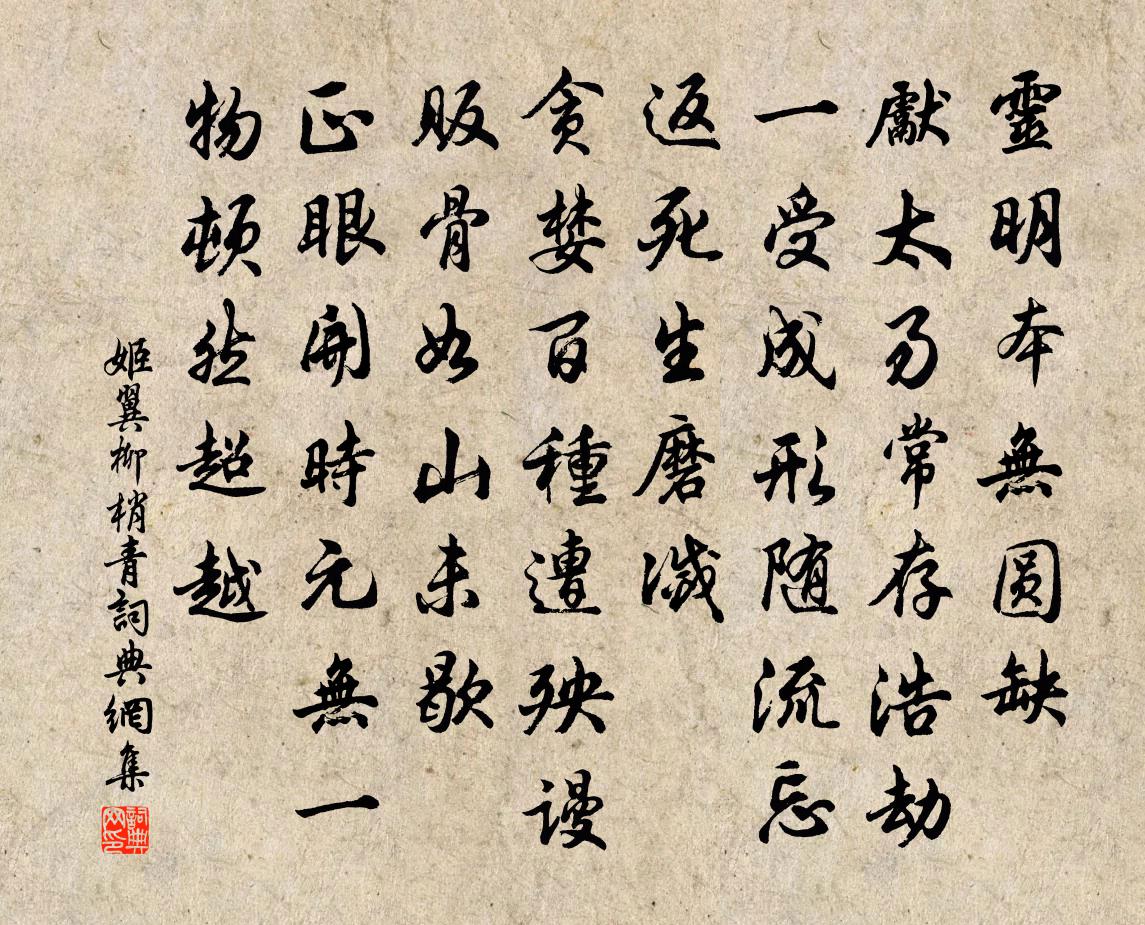 靈明本無圓缺
獻太易常存浩劫
一受成形随流忘
返死生磨滅
貪婪百種遭殃謾
販骨如山未歇
正眼開時元無一
物頓然超越
姬翼柳梢青詞典網集
詞典网印